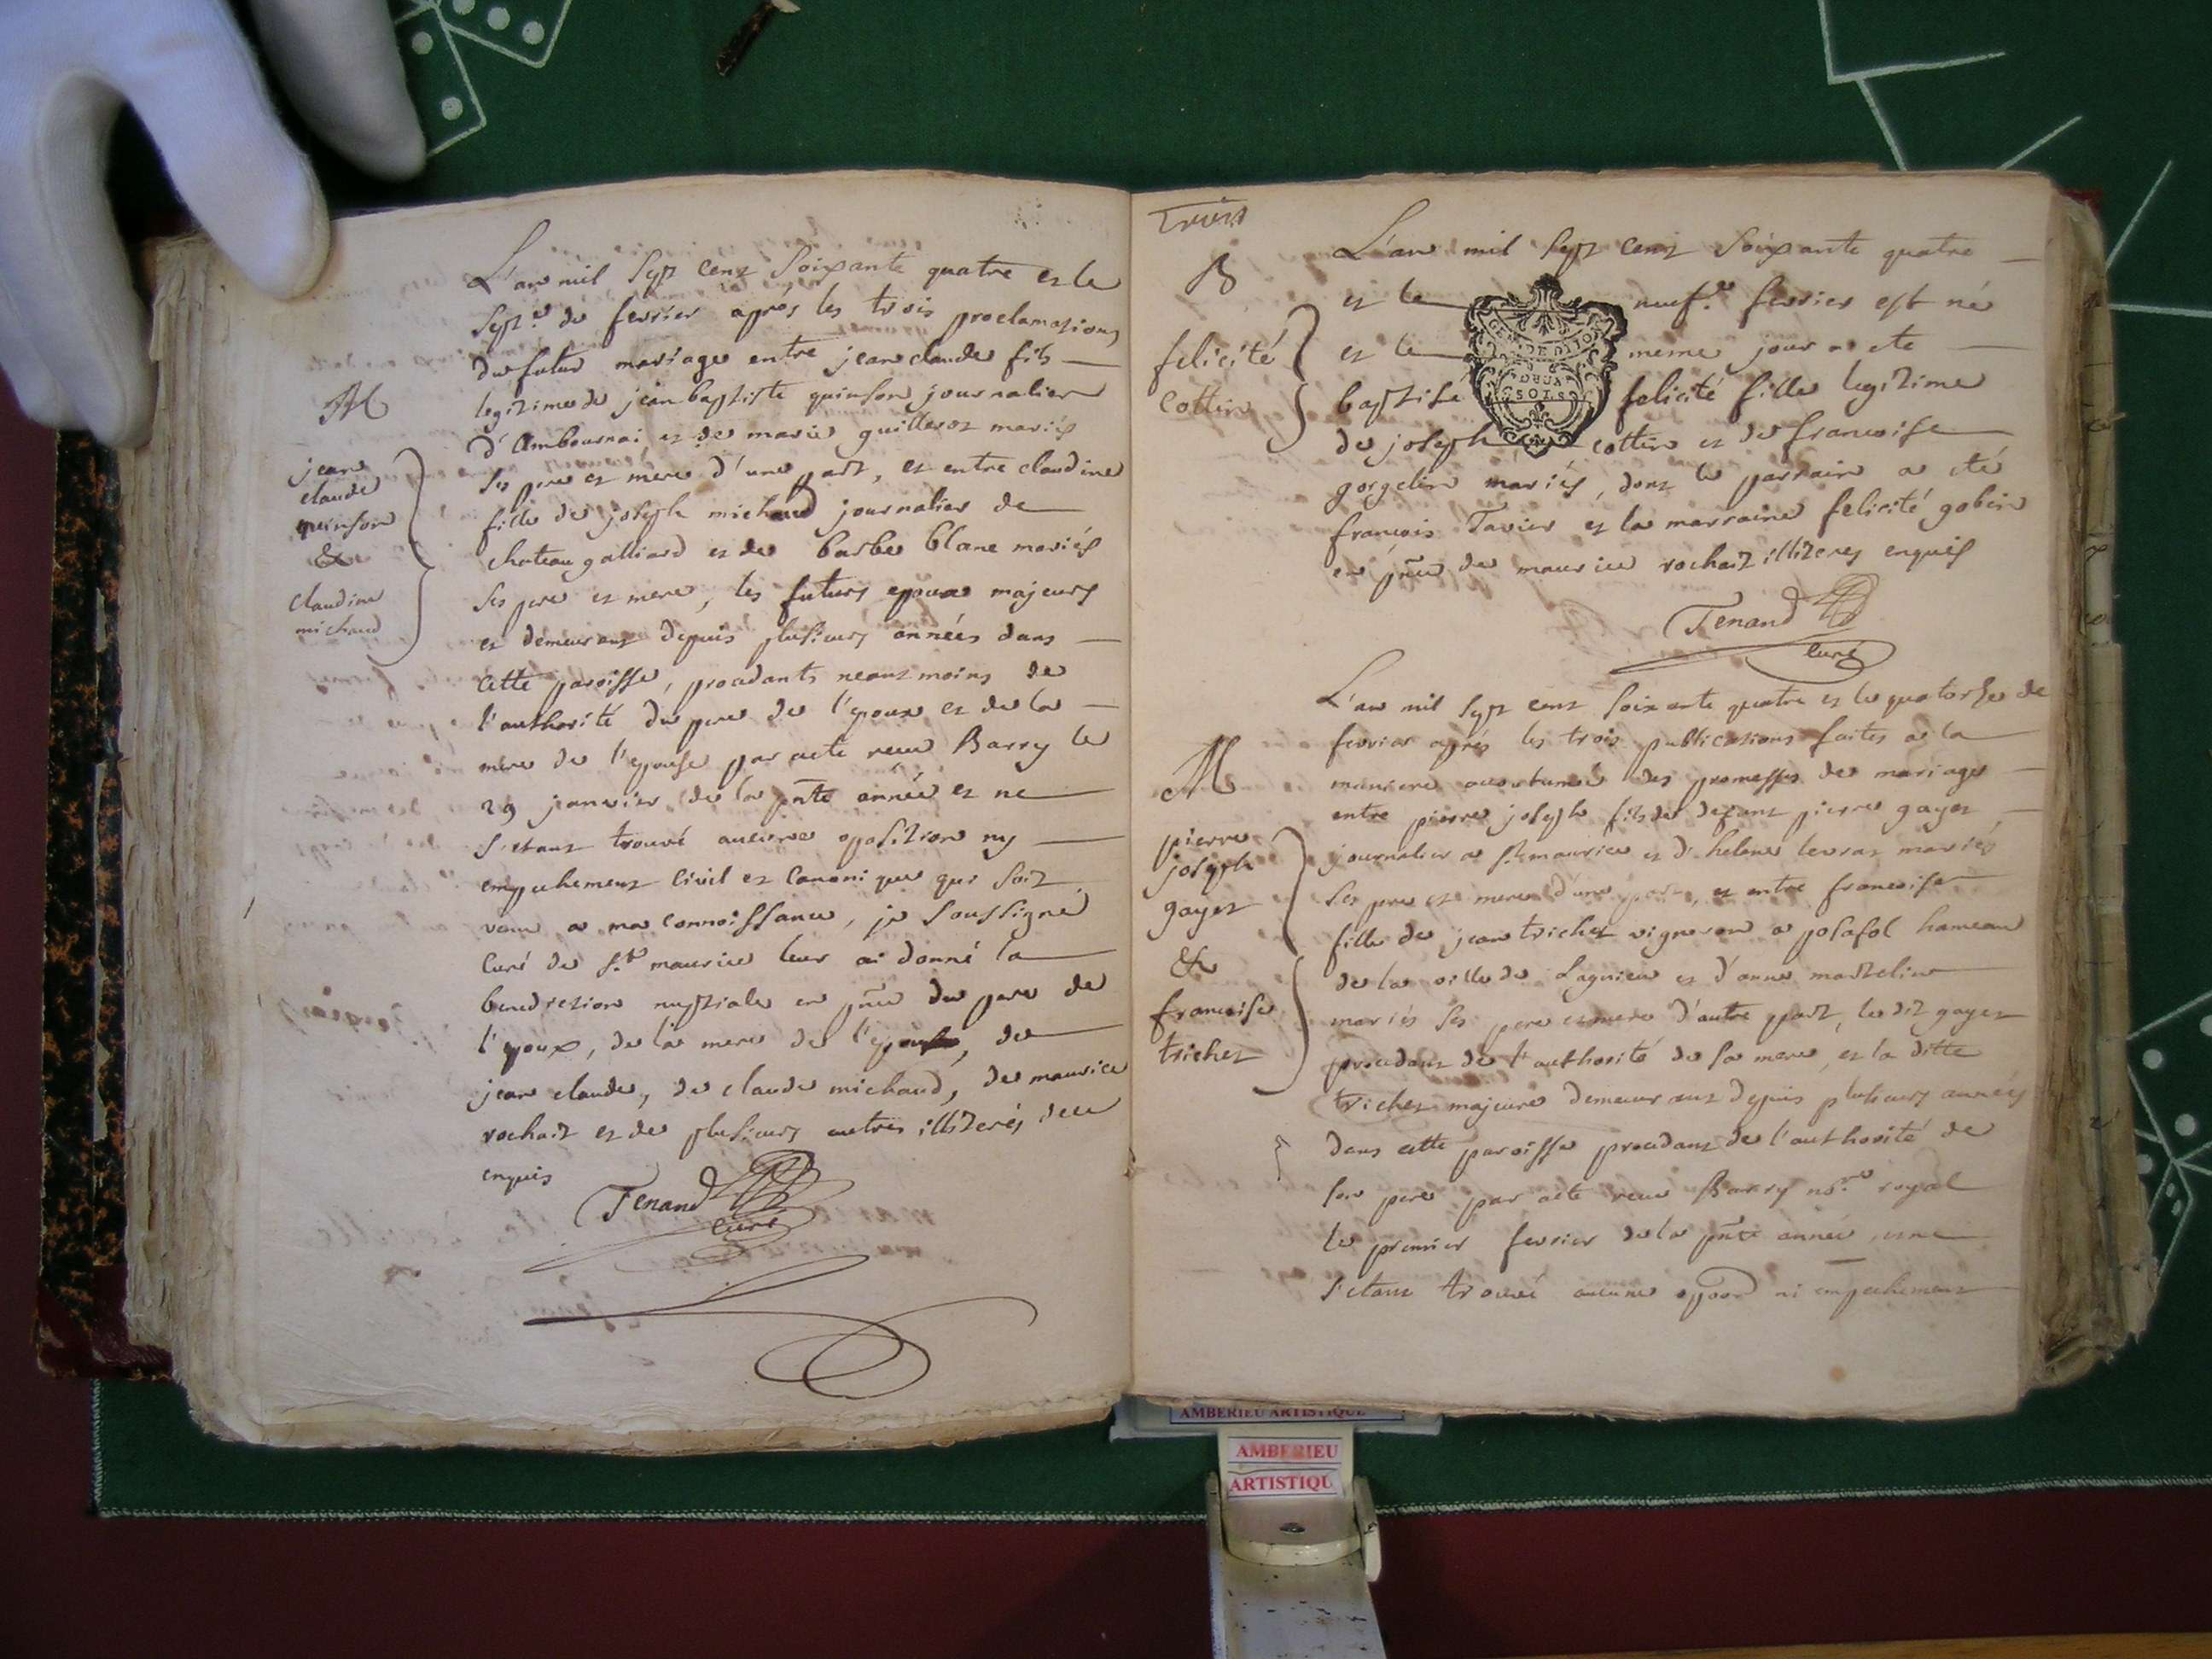 L'an mil sept cent soixante quatre et le
sept.e de fevrier aprés les trois proclamations
du futur mariage entre jean claude fils
legitime de jean baptiste quinson journalier
d'Ambournai et de marie guillerot mariés
ses pere et mere d'une part, et entre claudine
fille de joseph michaud journalier de
chateau galliard et de barbe blanc mariés
ses pere et mere, les futurs epoux majeurs
et demeurant depuis plusieurs années dans
cette paroisse, procedants neantmoins de
l'authorité du pere de l'epoux et de la
mere de l'epouse par acte reçu Barry le
29 janvier de la pnte année et ne
s'etant trouvé aucune oposition ny
empechement civil et canonique qui soit
venu a ma connoissance, je soussigné
curé de st maurice leur ai donné la
benediction nuptiale en pnce du pere de
l'epoux, de la mere de l'epouse, de
jean claude, de claude michaud, de maurice
rochait et de plusieurs autres illiterés
enquis
Tenand
curé
M
jean
claude
quinson
&
claudine
michaud
Trois
B
felicité
cottin
L'an mil sept cent soixante quatre
et le neuf.e fevrier est né
et le meme jour a ete
baptisé felicité fille legitime
de joseph cottin et de francoise
gorgelin mariés, dont le parrain a eté
francois Tavier et la marraine felicité gobin
en pnce de maurice rochait illiterés enquis
GEN. DE DIJON
DEUX
SOLS
Tenand
curé
M
pierre
joseph
gayet
&
francoise
trichet
L'an mil sept cent soixante quatre et le quatorse de
fevrier aprés les trois publications faites a la
maniere acoutumée des promesses de mariage
entre pierre joseph fils de defunt pierre gayet
journalier a st maurice et d'helene levrat mariés
ses pere et mere d'une part, et entre francoise
fille de jean trichet vigneron a posafol hameau
de la ville de Lagnieu et d'anne martelin
mariés ses pere et mere d'autre part, le dit gayet
procedant de l'authorité de sa mere, et la ditte
trichet majeure demeurant depuis plusieurs années
dans cette paroisse procedant de l'authorité de
son pere par acte reçu Barry no.re royal
le premier fevrier de la pnte année, et ne
s'etant trouvé aucune opoon ni empechement
AMBERIEU ARTISTIQUE
AMBERIEU
ARTISTIQU